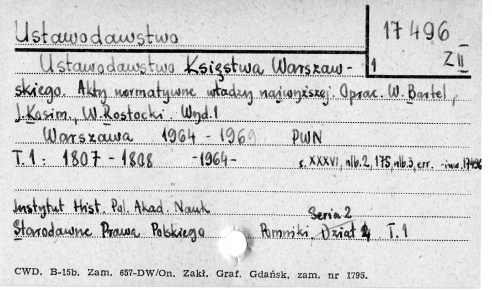 Ustawodawstwo
17496
Z II
Ustawodawstwo Księstwa Warszaw-
skiego. Akty normatywne władzy najwyższej. Oprac. W. Bartel,
J. Kosim, W. Rostocki. Wyd. 1
Warszawa 1964 - 1969 PWN
T. 1: 1807 - 1808 -1964- s. XXXVI, nlb. 2, 175, nlb. 3, err. -inw. 17496
Instytut Hist. Pol. Akad. Nauk
Seria 2
Starodawne Prawa Polskiego Pomniki, Dział 4 T. 1
CWD. B-15b. Zam. 657-DW/On. Zakł. Graf. Gdańsk, zam. nr 1795.